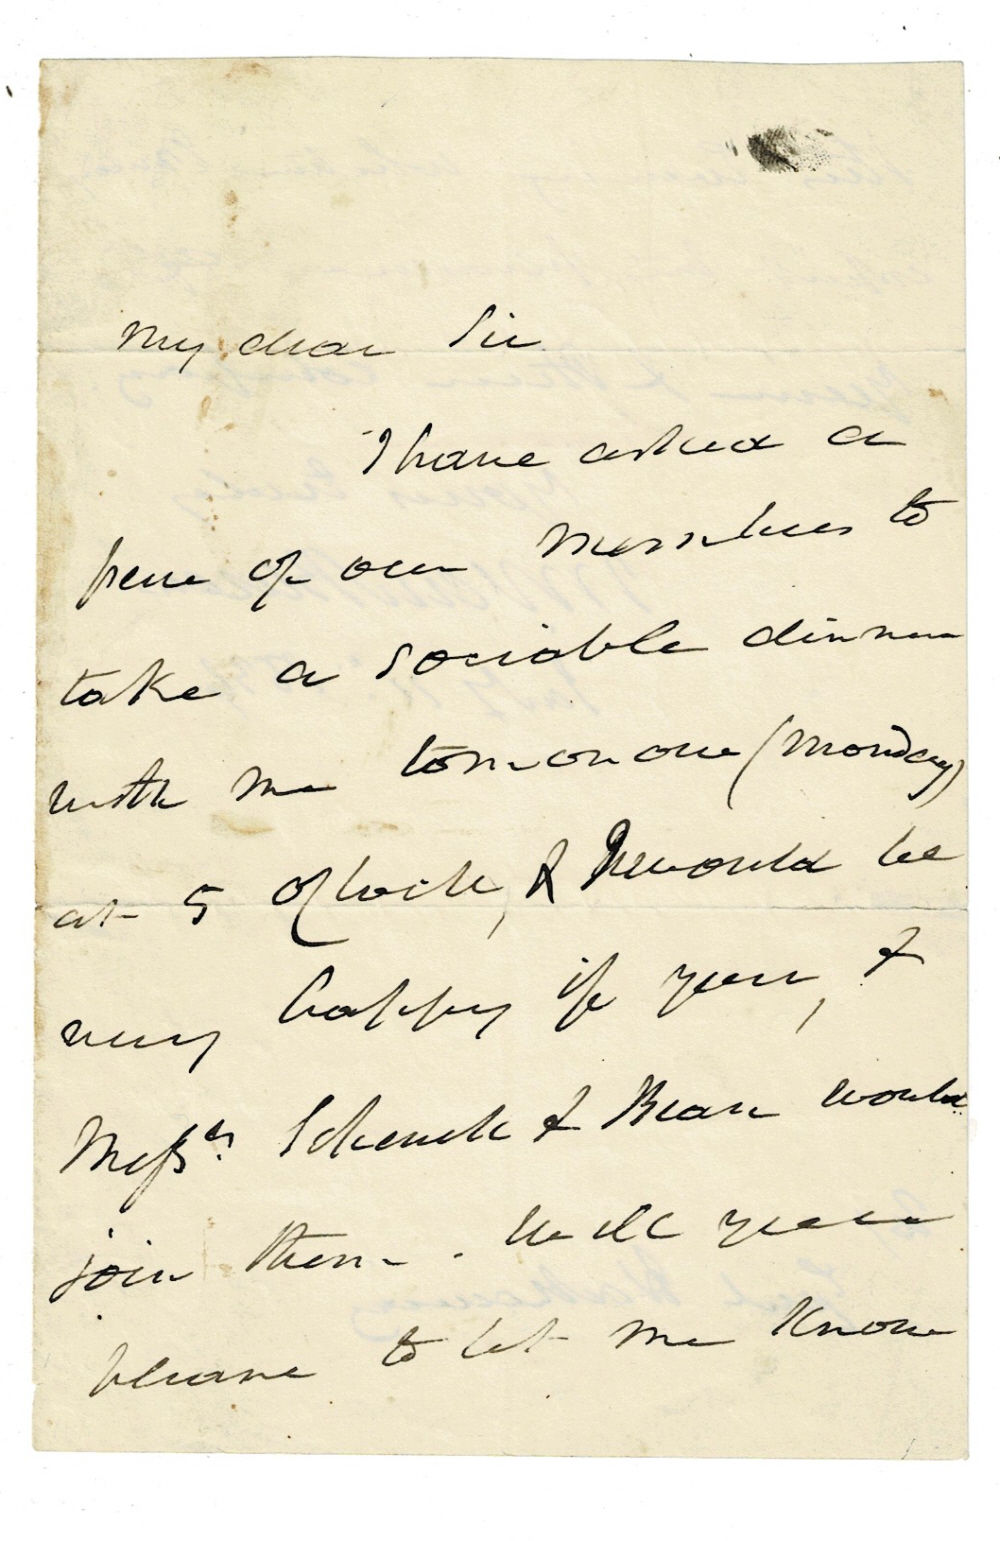 My dear Sir
I have asked a
few of our Members to
take a sociable dinner
with me tomorrow (Monday)
at 5 O'clock, & would be
very happy if you, &
Messrs. Schenck & would
join them. Will you
please to let me know